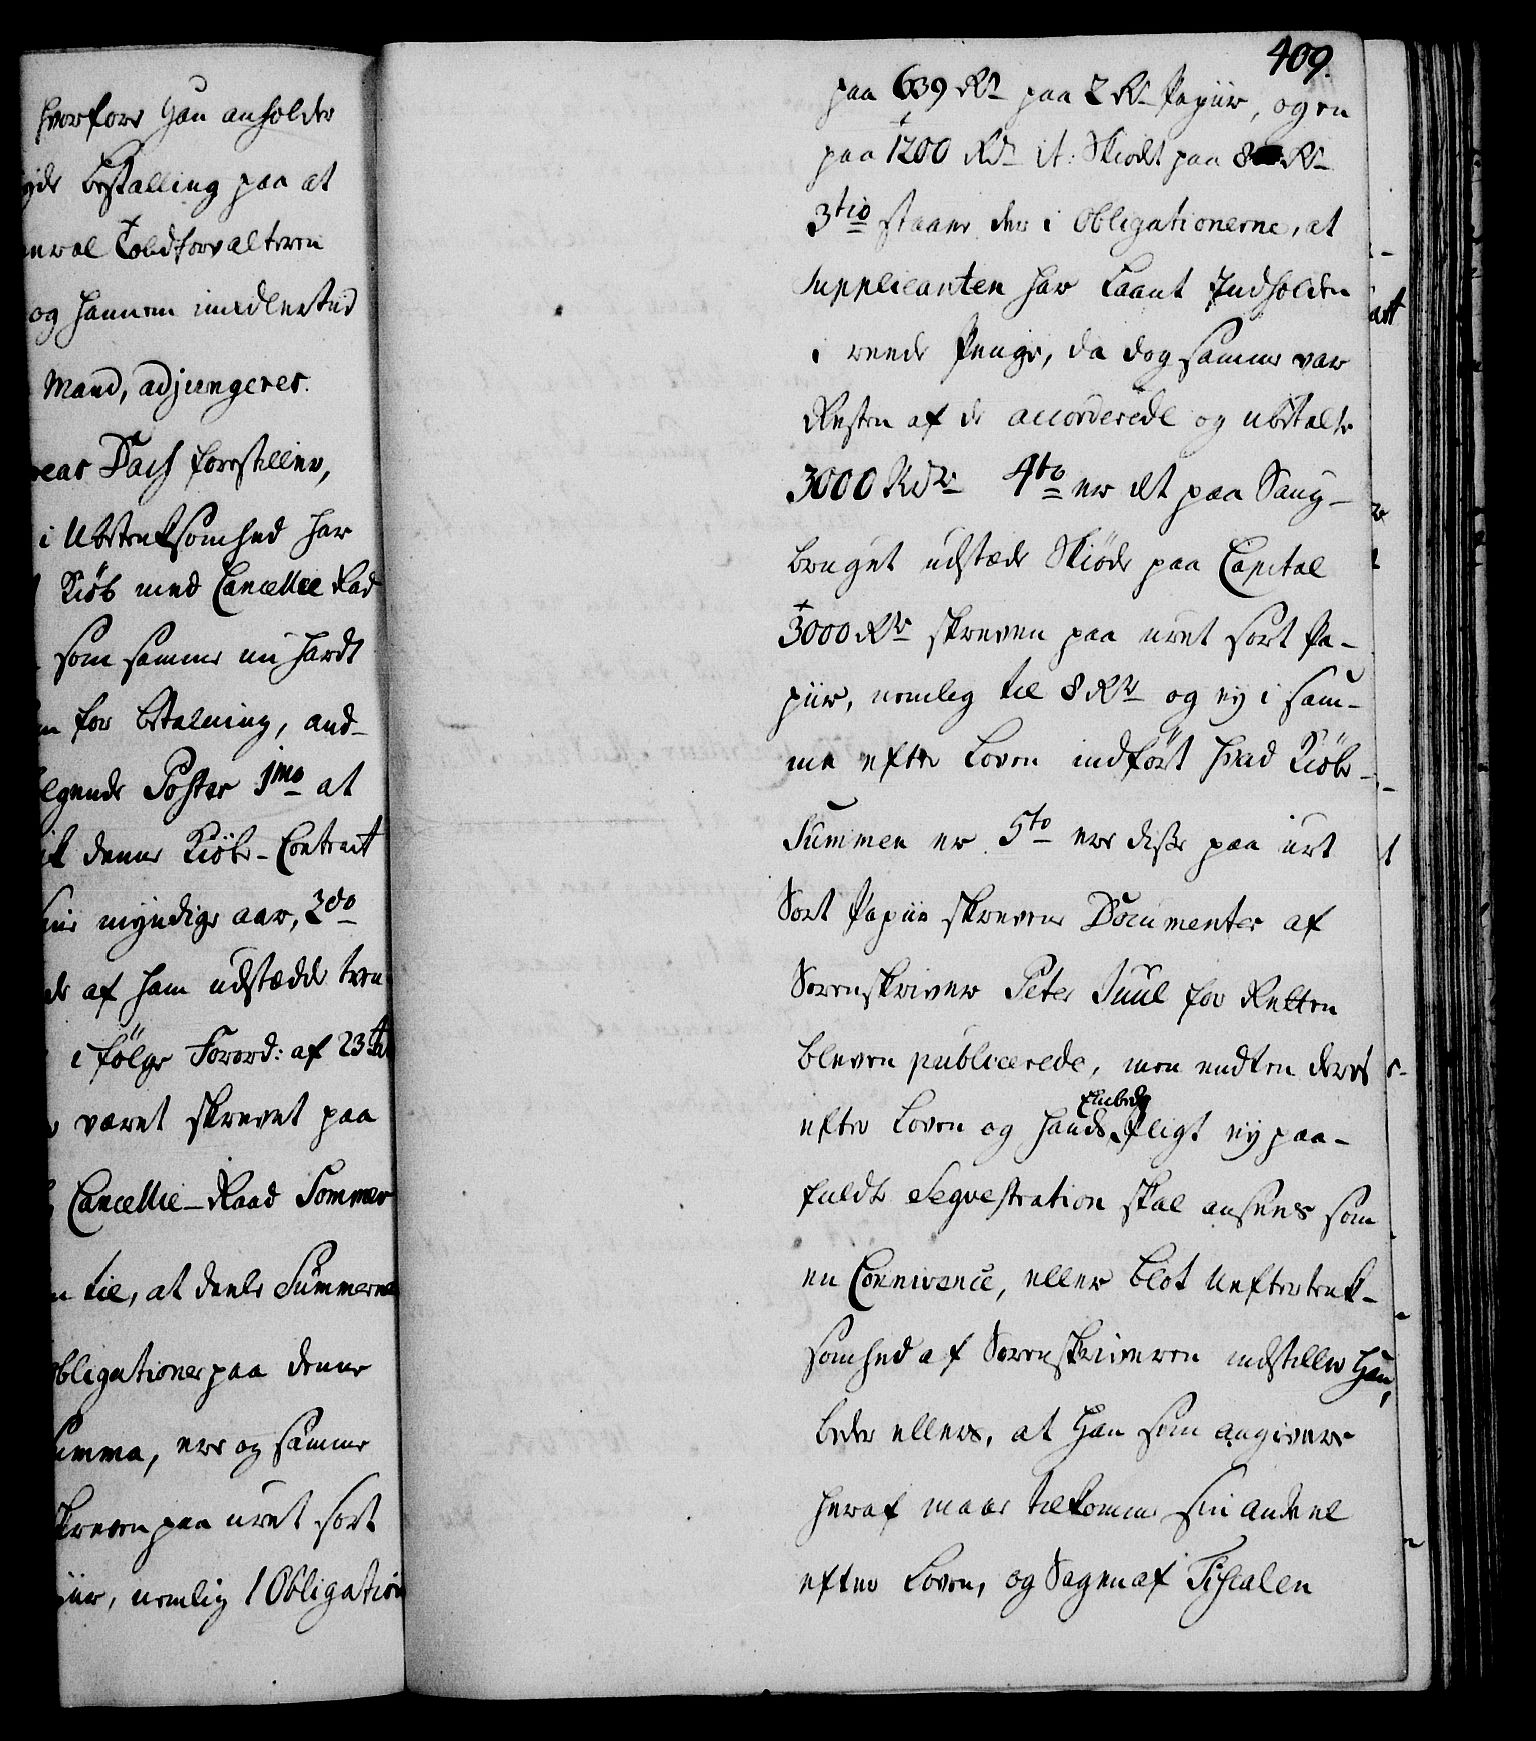 hvorfore Han anholder
Bestalling paa at
Toldforvalteren
og hannem imidlertid
Mand, adjungeres.
Dach forestiller,
i Ubetenksomhed har
Kiöb med Cancellie Rad
som samme nu hardt
for Betalning, and-
Poster 1mo at
denne Kiöbe-Contract
myndige aar, 2do
af ham udstædde tven
i fölge Forord: af 23de
været skrevet paa
Cancellie-Raad Sommer
til, at deele Summerne
Obligationer paa denne
Summa, ere og samme
skreven paa uret sort
nemlig 1 Obligation
409.
paa 639 Rdr paa 2 Rdr Papiir, og en
paa 1200 Rdr it: Skiödet paa 8 Rdr
3tio staaer der i Obligationerne, at
Supplicanten har Laant Indholden
i reede Penge, da dog samme var
Resten af de accorderede og ubetalte
3000 Rdr 4to er det paa Saug-
bruget udstæde Skiöde paa Capital
3000 Rdr skreven paa uret sort Pa-
piir, nemlig til 8 Rdr og ey i sam-
me efter Loven indfört hvad Kiöbe-
Summen er 5to ere disse paa uret
Sort Papiir skrevene Documenter af
Sorenskriver Peter Juul for Retten
bleven publicerede, men endten deres
efter Loven og hands Embeds Pligt ey paa-
fuldte Seqvestration skal ansees som
en Connivence, eller blot Ueftertenk-
somhed af Sorenskriveren indstiller Han,
beder ellers, at Han som angivere
heraf maae tilkomme sin Andeel
efter Loven, og Sagen af Fiscalen